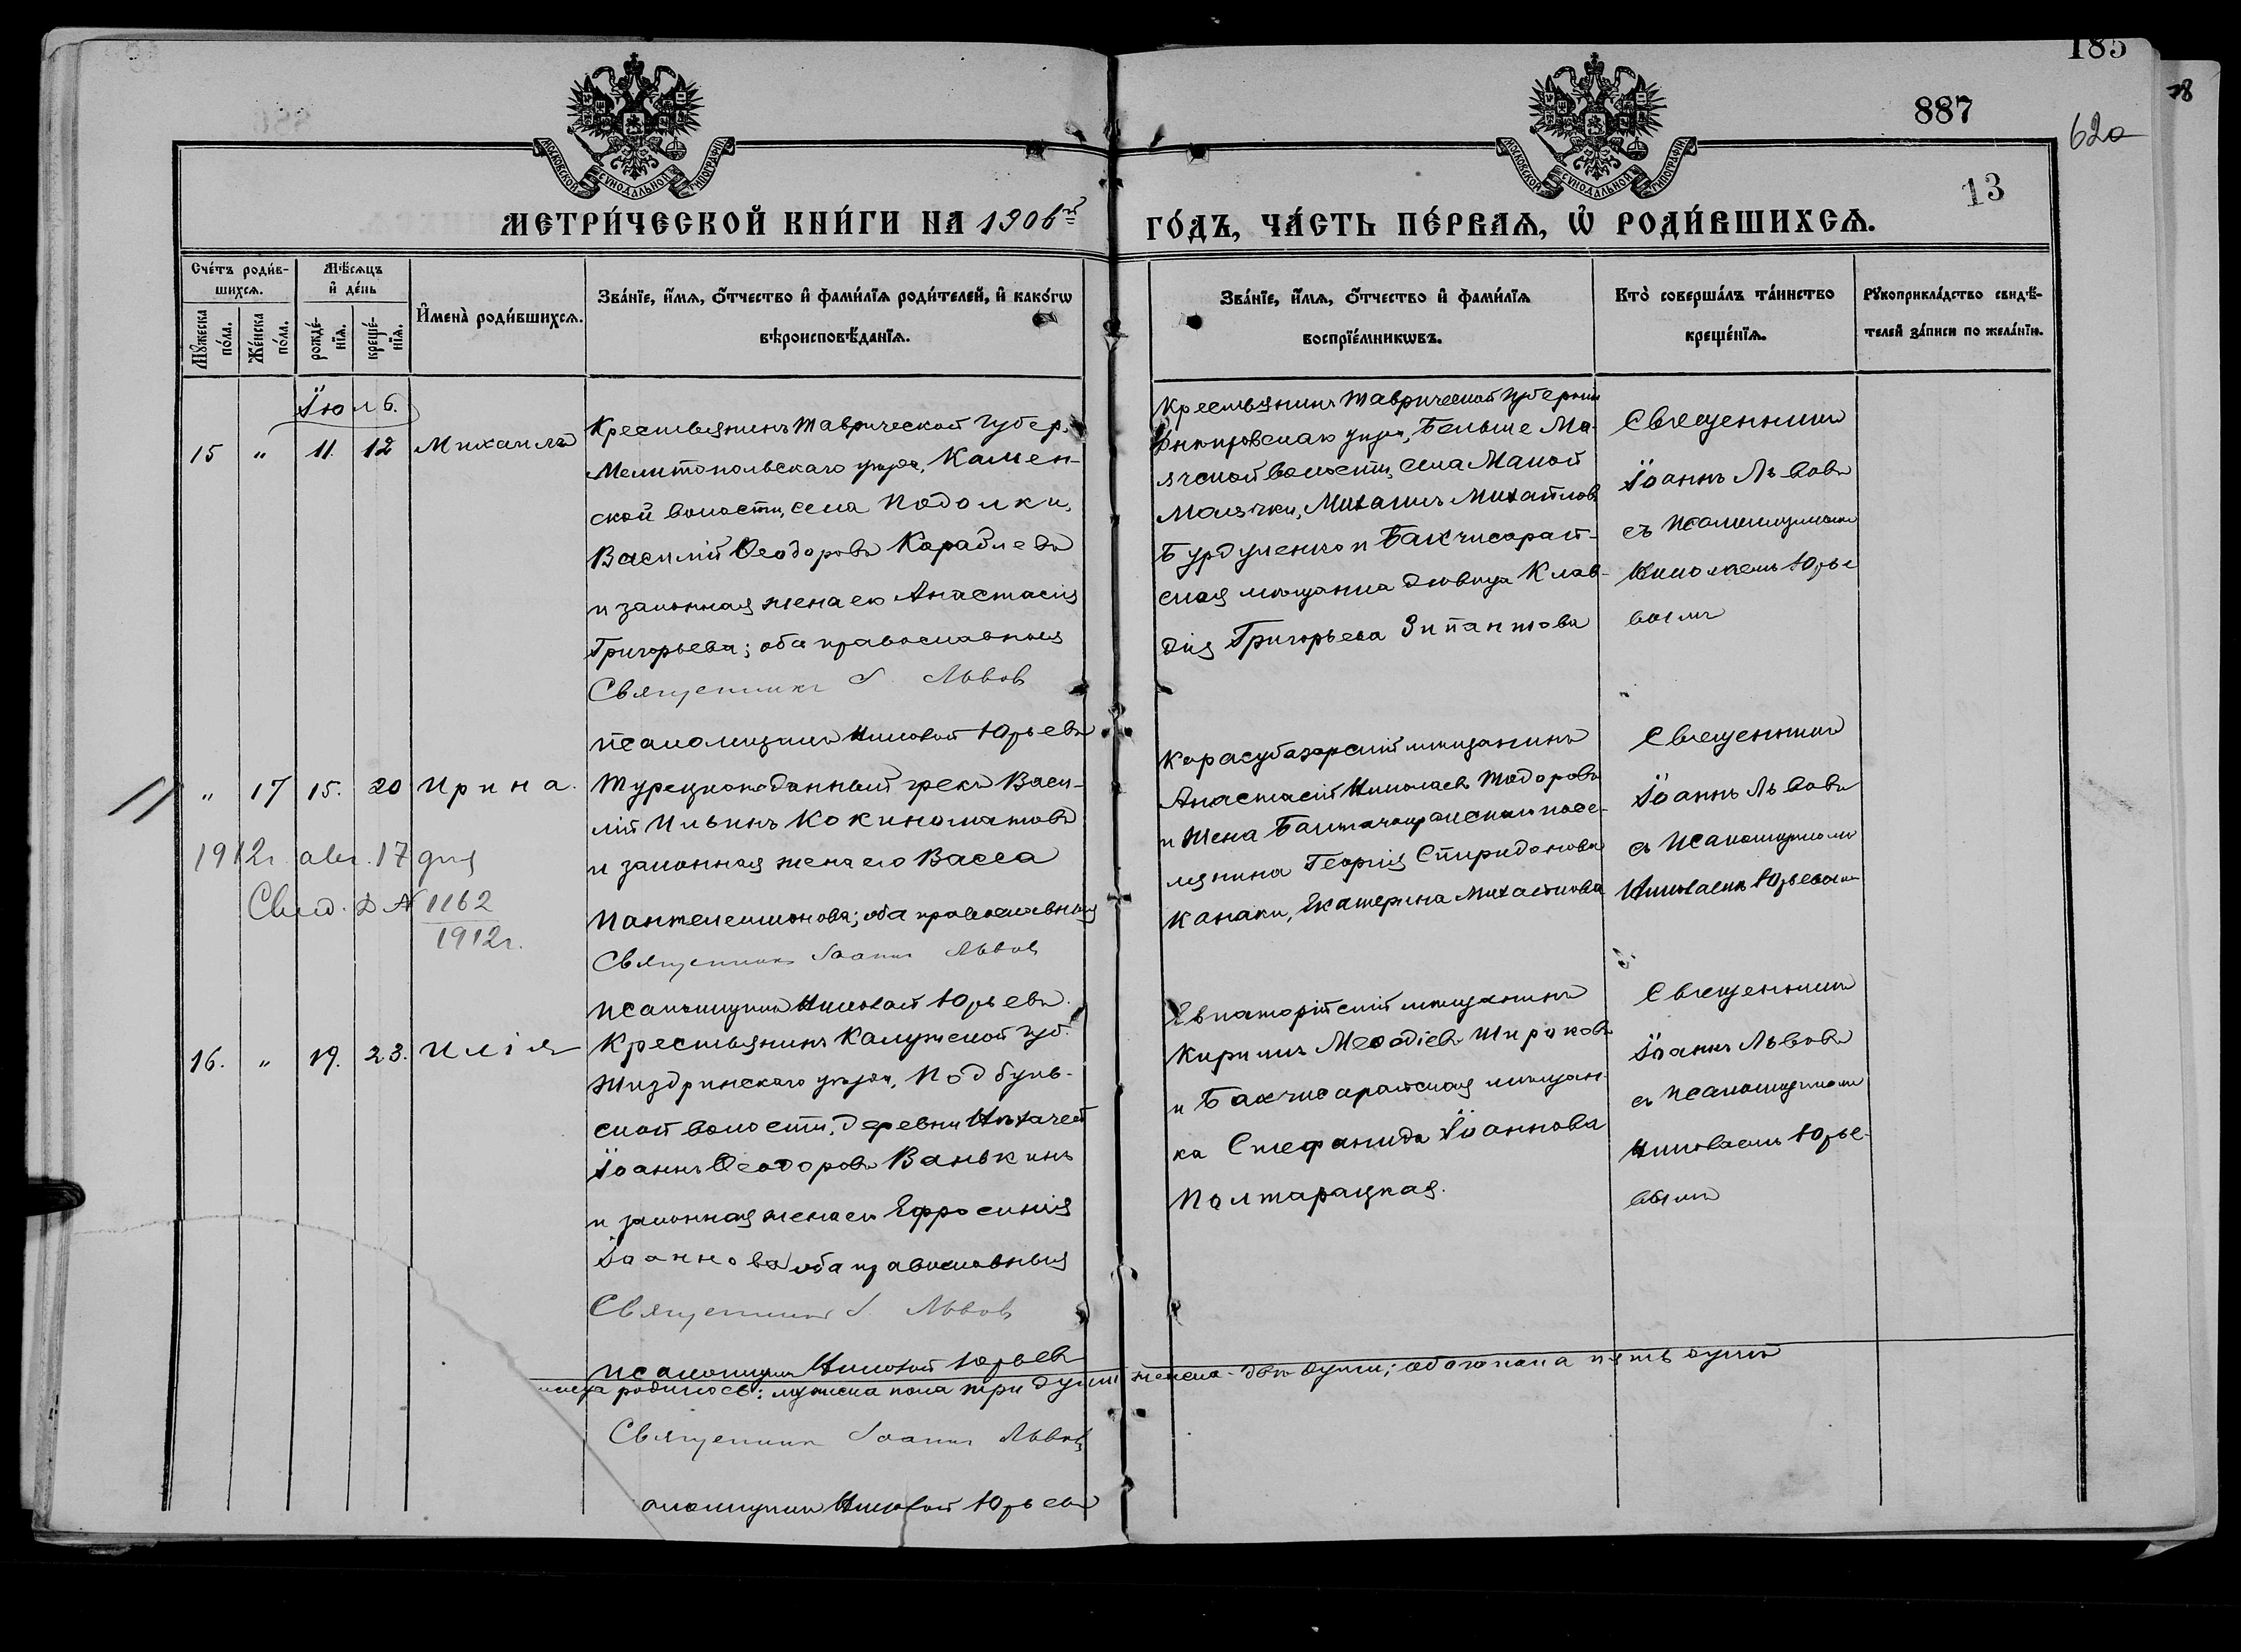 185
887
620
28
13
МОСКОВСКОЙ СѴНОДАЛЬНОЙ ТИПОГРАФІИ
МОСКОВСКОЙ СѴНОДАЛЬНОЙ ТИПОГРАФІИ
МЕТРИ́ЧЕСКОЙ КНИ́ГИ НА 1906й
ГО́ДЪ, ЧА́СТЬ ПЕ́РВАЯ, Ѡ҆ РОДИ́ВШИХСЯ.
Сче́тъ роди́в-
шихся.
Мѣ́сяцъ
и҆ де́нь
Мꙋ́жеска по́ла.
Же́нска по́ла.
рожде́-
нїя.
креще́-
нїя.
И҆мена̀ роди́вшихся.
Зва́нїе, и҆́мя, ѻ҆́тчество и҆ фами́лїя роди́телей, и҆ како́гѡ
вѣроисповѣ́данїя.
Зва́нїе, и҆́мя, ѻ҆́тчество и҆ фами́лїя
воспрїе́мникѡвъ.
Кто̀ соверша́лъ та́инство
креще́нїя.
Рꙋкоприкла́дство свидѣ́-
телей за́писи по жела́нїю.
Іюль.
15 " 11. 12 Михаилъ
Крестьянинъ Таврической губер.
Мелитопольскаго уѣзда, Камен-
ской волости, села Подолки,
Василій Ѳеодоровъ Кораблевъ
и законная жена его Анастасія
Григорьева; оба православныя
Священникъ І. Львов
псаломщикъ Николай Юрьевъ
Крестьянинъ Таврической губерніи
Днѣпровскаго уѣзда, Больше Ма-
ячской волости, села Малой
Маячки, Михаилъ Михайловъ
Бурдученко и Бахчисарай-
ская мѣщанка дѣвица Клав-
дія Григорьева
Священникъ
Іоаннъ Львовъ
съ псаломщикомъ
Николаемъ Юрье
вымъ
" 17 15. 20 Ирина.
1912г. авг. 17 дня
Свид. № 1162
1912г.
Турецкоподанный грекъ Васи-
лій Ильинъ Кокиноматовъ
и законная жена его Васса
Пантелеимонова; оба православныя
Священникъ Іоаннъ Львов
псаломщикъ Николай Юрьевъ.
Карасубазарскій мѣщанинъ
Анастасій Николаевъ Тодоровъ
и жена посе-
лянина Георгія Спиридонова
Канаки, Екатерина Михайлова
Священникъ
Іоаннъ Львовъ
съ псаломщикомъ
Николаемъ Юрьевымъ
16. " 19. 23. Илія
Крестьянинъ Калужской губ.
Жиздринскаго уѣзда, Подбуж-
ской волости, деревни
Іоаннъ Ѳеодоровъ Ванькинъ
и законная жена его Ефросинія
Іоаннова оба православныя
Священникъ І. Львов
псаломщикъ Николай Юрьевъ
Евпаторійскій мѣщанинъ
Кириллъ Меѳодіевъ Широковъ
и Бахчисарайская мѣщан-
ка Стефанида Іоаннова
Полтарацкая.
Священникъ
Іоаннъ Львовъ
съ псаломщикомъ
Николаемъ Юрье-
вымъ
родилось: мужска пола три души женска - двѣ души; обоего пола пять душъ
Священникъ Іоаннъ Львов
аломщикъ Николай Юрьевъ